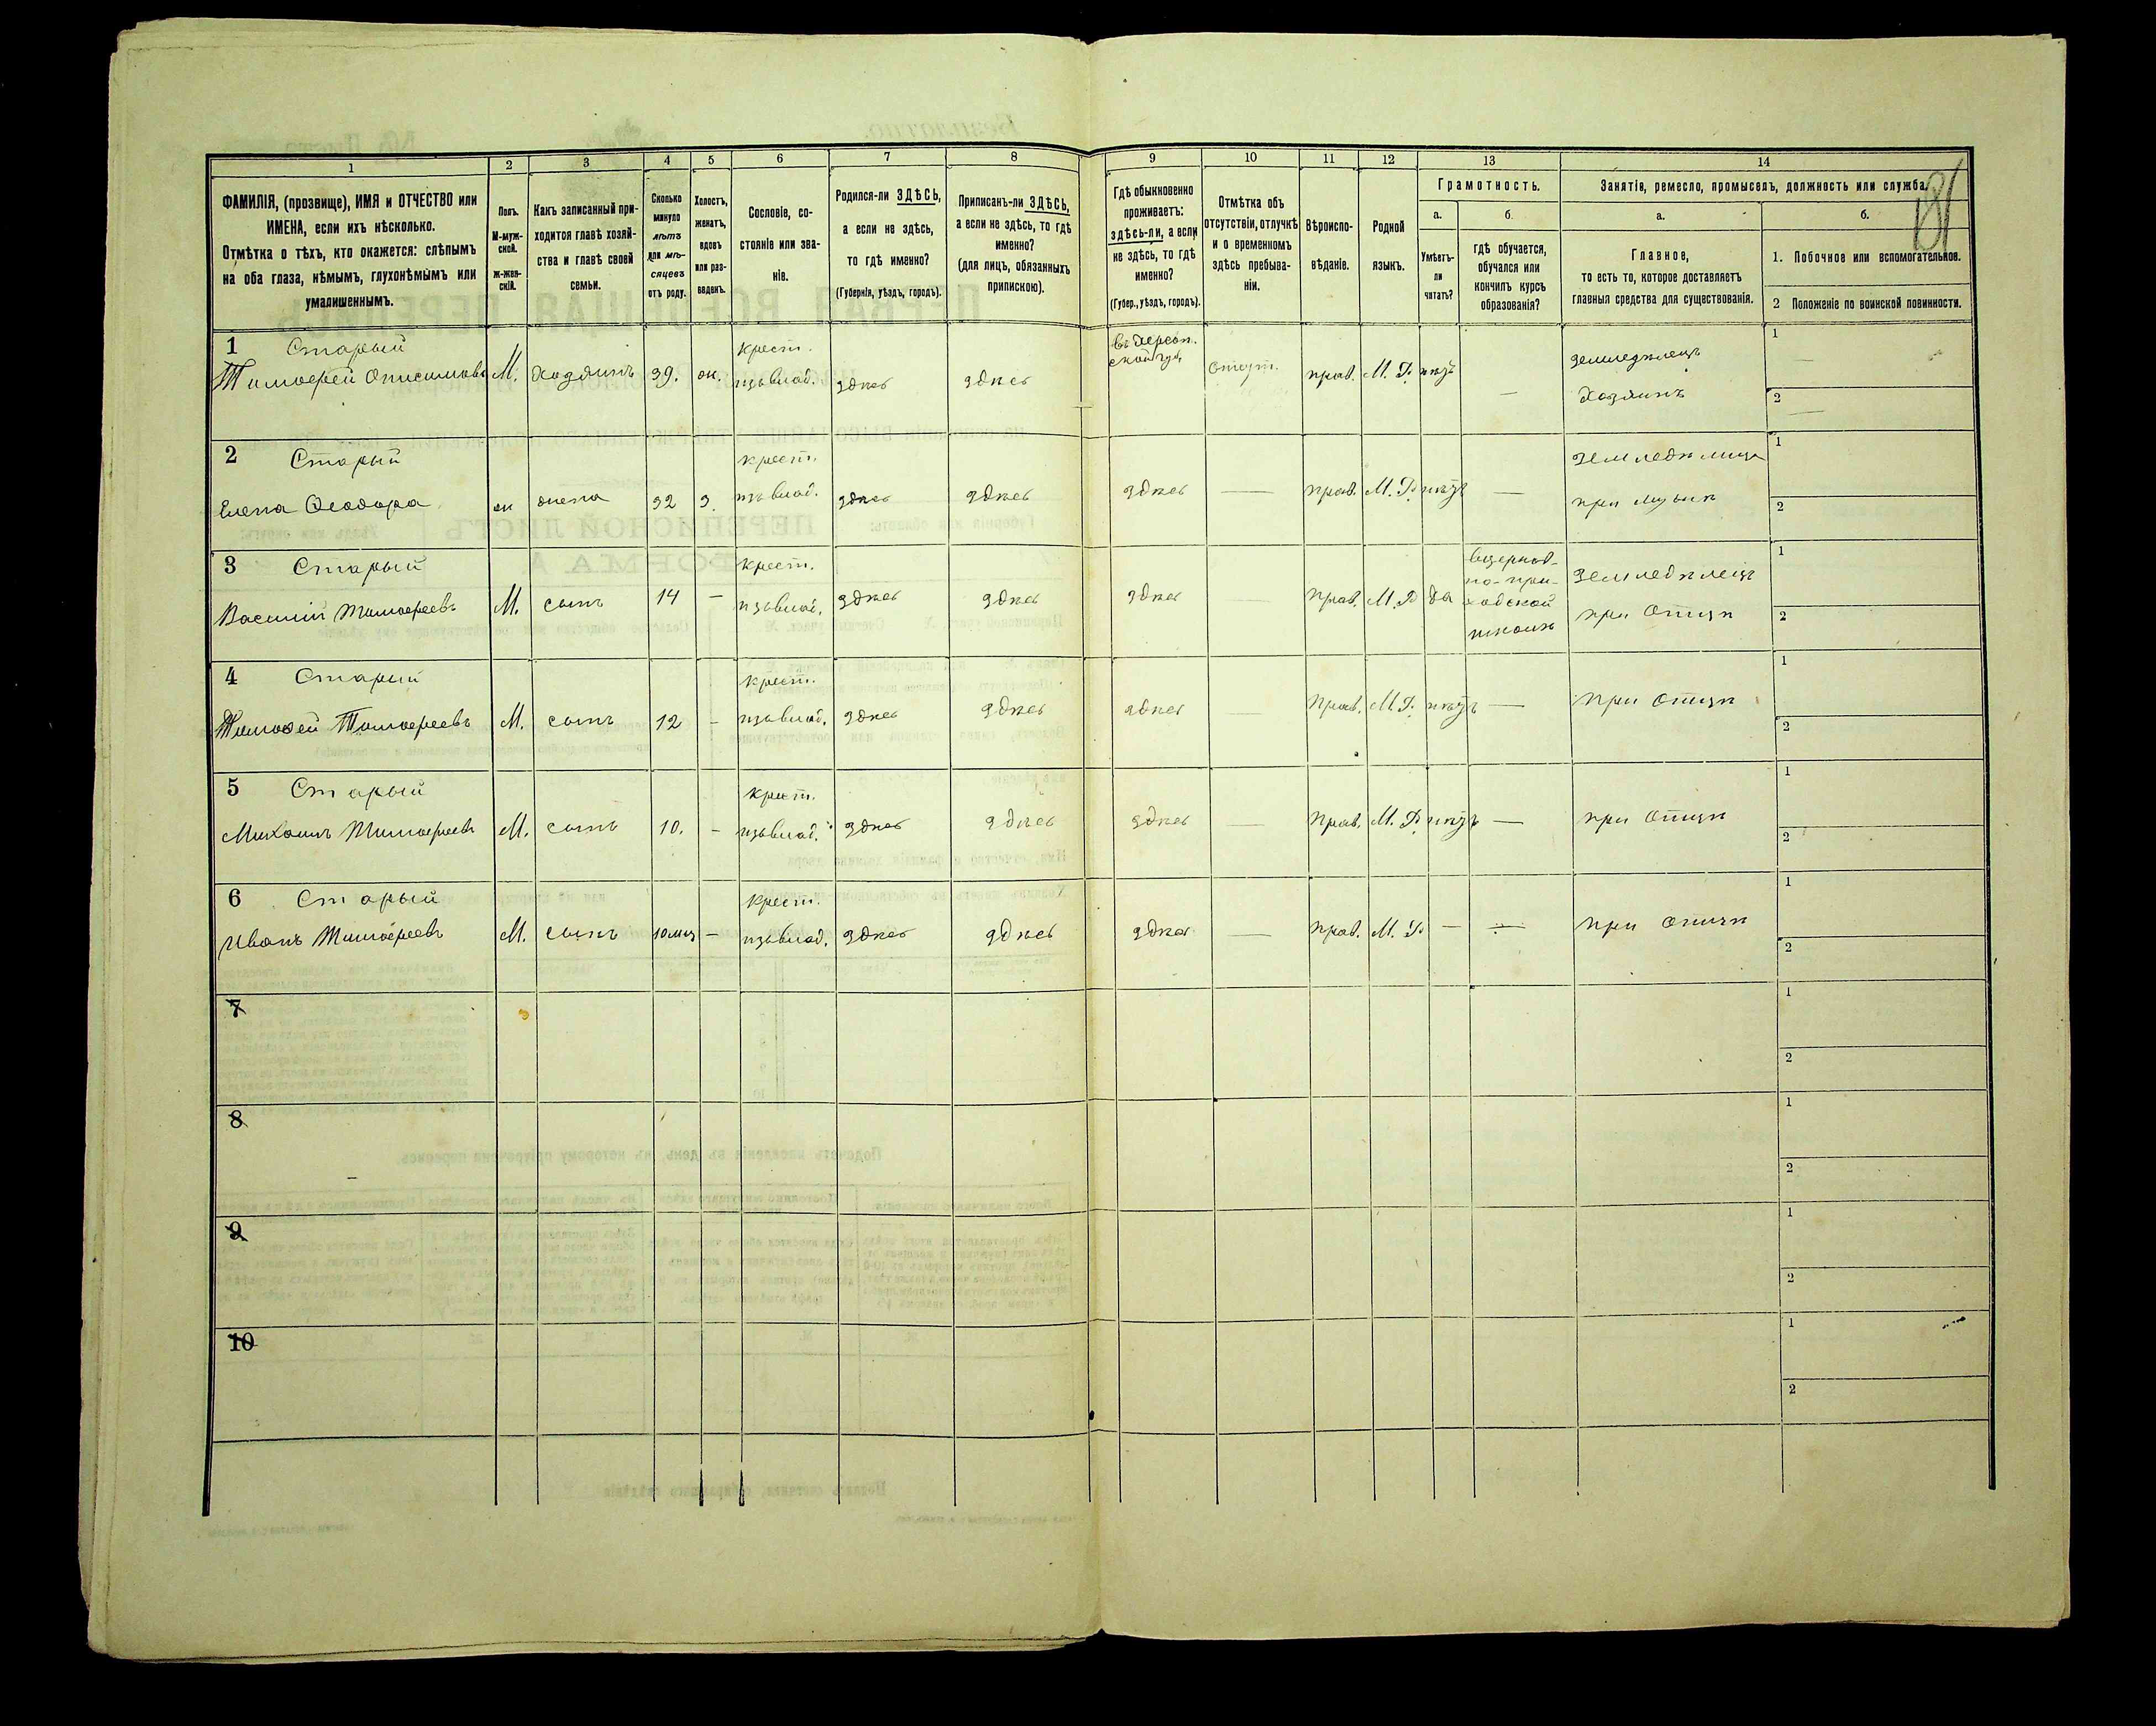 1 2 3 4 5 6 7 8 9 10 11 12 13 14
ФАМИЛІЯ, (прозвище), ИМЯ и ОТЧЕСТВО или
ИМЕНА, если ихъ нѣсколько.
Отмѣтка о тѣхъ, кто окажется: слѣпымъ
на оба глаза, нѣмымъ, глухонѣмымъ или
умалишеннымъ.
Полъ.
М-муж-
ской.
Ж-жен-
скій.
Какъ записанный при-
ходится главѣ хозяй-
ства и главѣ своей
семьи.
Сколько
минуло
лѣтъ
или мѣ-
сяцевъ
отъ роду.
Холостъ,
женатъ,
вдовъ
или раз-
веденъ.
Сословіе, со-
стояніе или зва-
ніе.
Родился-ли ЗДѢСЬ,
а если не здѣсь,
то гдѣ именно?
(Губернія, уѣздъ, городъ).
Приписанъ-ли ЗДѢСЬ,
а если не здѣсь, то гдѣ
именно?
(для лицъ, обязанныхъ
припискою).
Гдѣ обыкновенно
проживаетъ:
здѣсь-ли, а если
не здѣсь, то гдѣ
именно?
(Губер., уѣздъ, городъ).
Отмѣтка объ
отсутствіи, отлучкѣ
и о временномъ
здѣсь пребыва-
ніи.
Вѣроиспо-
вѣданіе.
Родной
языкъ.
Грамотность.
а.
Умѣетъ-
ли
читать?
б.
гдѣ обучается,
обучался или
кончилъ курсъ
образованія?
Занятіе, ремесло, промыселъ, должность или служба.
а.
Главное,
то есть то, которое доставляетъ
главныя средства для существованія.
б.
1. Побочное или вспомогательное.
2 Положеніе по воинской повинности.
181
1 Старый крест. въ Херсон.
ской губ. земледѣлецъ 1
Тимоѳей Онисимовъ М. Хозяинъ 39. ж. изъ влад. здѣсь здѣсь отсут. прав. М. Р. нѣтъ — Хозяинъ 2
2 Старый крест. земледѣлица 1
Елена Ѳеодора ж жена 32 з. изъ влад. здѣсь здѣсь здѣсь — прав. М. Р. нѣтъ — при мужѣ 2
3 Старый крест. въ церков-
но-при-
ходской
школѣ земледѣлецъ 1
Василій Тимоѳеевъ М. сынъ 14 — изъ влад. здѣсь здѣсь здѣсь прав. М. Р да при отцѣ 2
4 Старый крест. 1
Тимоѳей Тимоѳеевъ М. сынъ 12 — изъ влад. здѣсь здѣсь здѣсь — прав. М. Р. нѣтъ — при отцѣ 2
5 Старый крест. 1
Михаилъ Тимоѳеевъ М. сынъ 10. — изъ влад. здѣсь здѣсь здѣсь — прав. М. Р. нѣтъ — при отцѣ 2
6 Старый крест. 1
Иванъ Тимоѳеевъ М. сынъ 10 мѣс — изъ влад. здѣсь здѣсь здѣсь — прав. М. Р — — при отцѣ 2
7 1
2
8 1
2
9 1
2
10 1
2